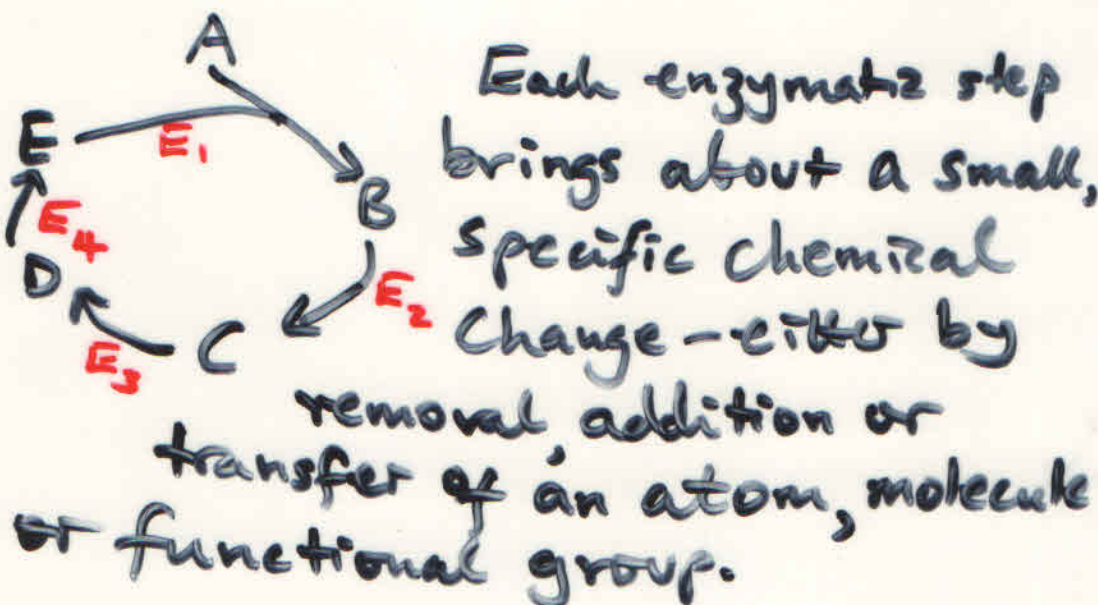 A
E
E₁
E₄
B
D
E₂
C
E₃
Each enzymatic step
brings about a small,
specific chemical
Change - either by
removal, addition or
transfer of an atom, molecule
or functional group.